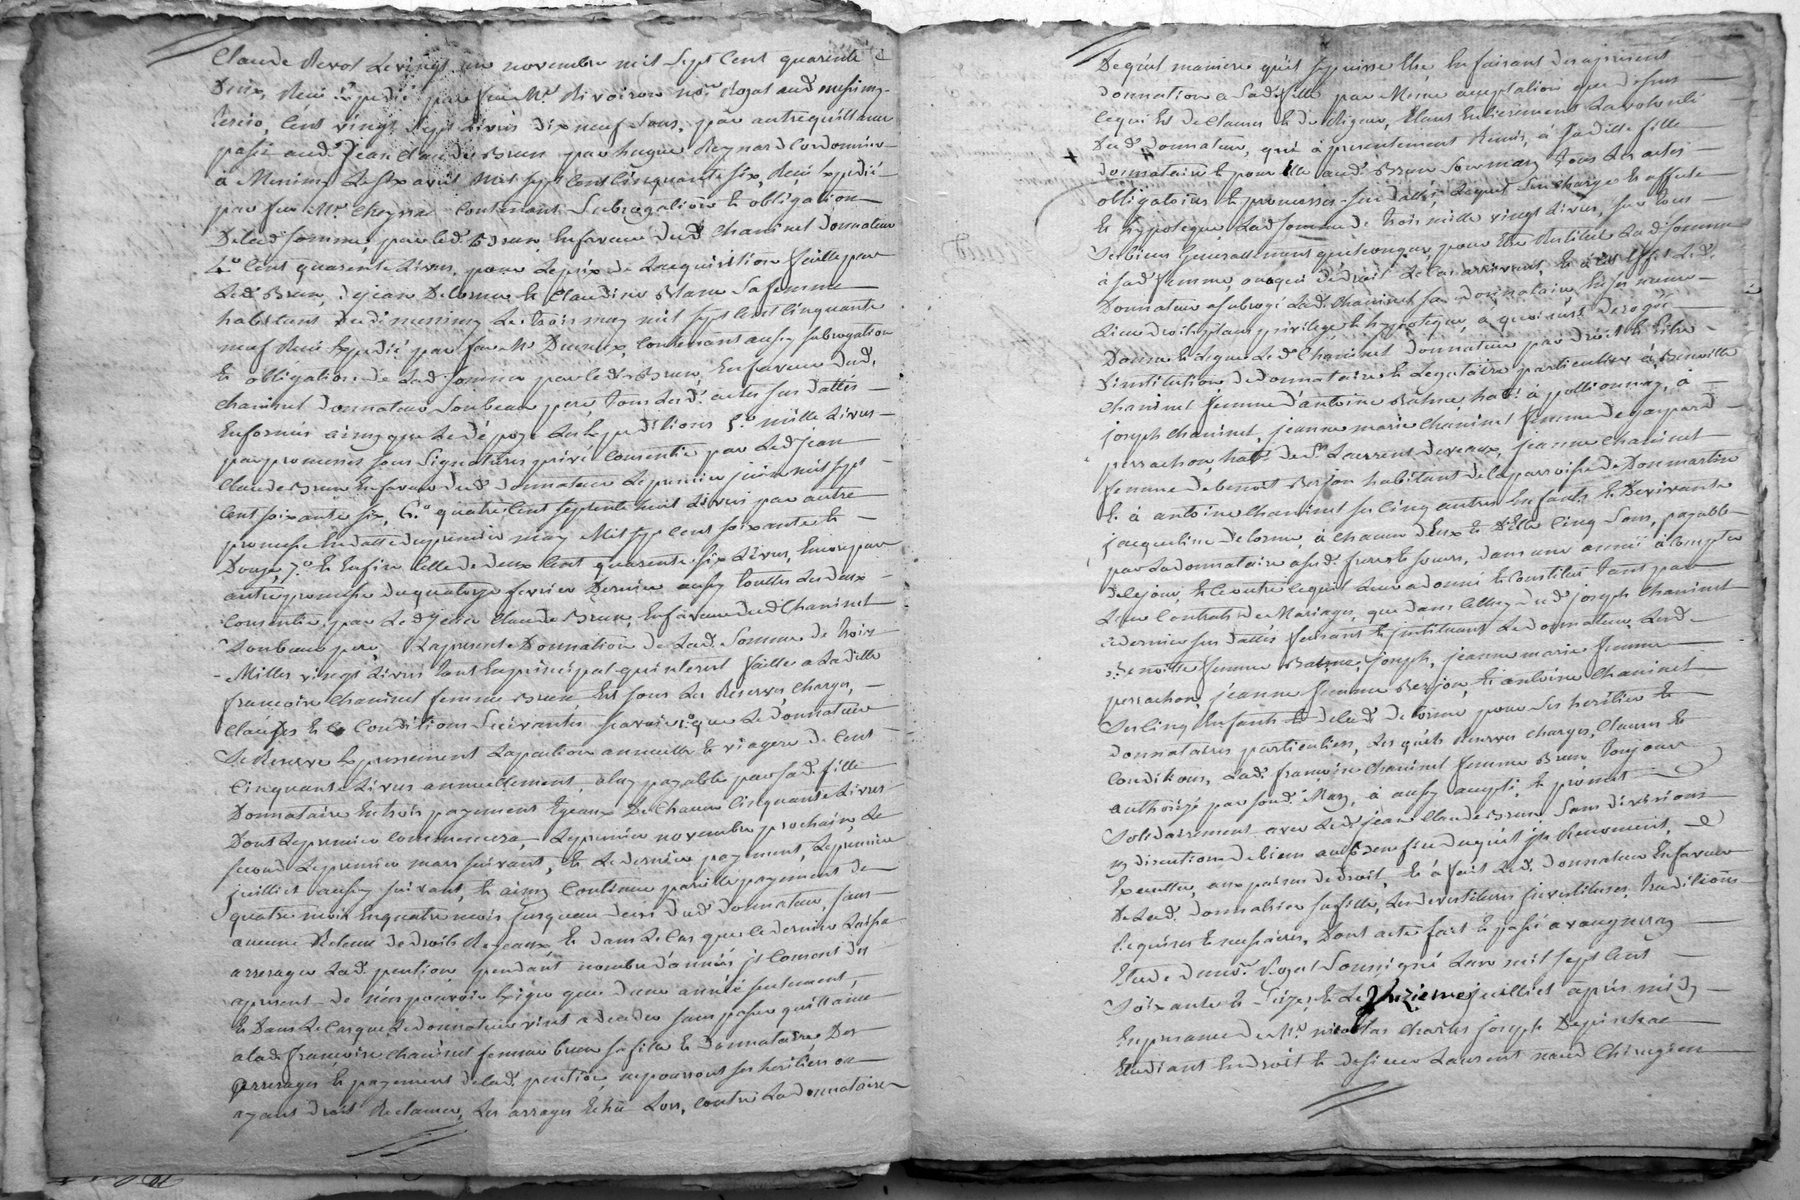 Claude Revol le vingt un novembre mil sept cent quarente
Deux, Reçu Expedié par feu Me Rivoiron nore Royal aud messimy
tercio, Cent vingt sept livres dix neuf sous, par autre quittance
passée aud. Jean Claude Brun par hugue Reynard Cordonnier
à Messimy Le six avril mil sept cent Cinquante six, Reçu Expedié
par feu Me Cheyssac Contenant Subrogation et obligation
De lad somme, par led. Brun En faveur dud. Chaninet donnateur
4.o Cent quarente livres, pour le prix de L'acquisition faitte par
Led. Brun, de jean Delorme et Claudine Blanc sa femme
habitans dudt messimy Le trois may mil sept cent Cinquante
neuf Reçu Expedié par feu Me Contenant aussy subrogation
et obligation de Lad somme par led. Brun, En faveur dud.
Chaninet Donnateur son beau pere, tous lesd. actes sus dattés
En formés ainsy que Le dépoze Les Expeditions 5.o mille livres
par promesses sous Signatures privé Consentie par Led jean
Claude Brun En faveur dud. donnateur Le premier juin mil sept
cent soixante six, 6.o quatre Cent septente huit livres par autre
promesse En datte du premier may Mil sept cent soixante et
Douze, 7.o et Enfin Celle de deux Cent quarente six Livres, Encore par
autre promesse du quatorze fevrier Dernier aussy touttes Les deux
Consentie, par Led. Jean Claude Brun En faveur dud. Chaninet
Son beau pere, La presente Donnation de Lad. Somme de trois
Milles vingt livres tant En principal qu'interest faitte a Laditte
francoise Chaninet femme Brun Est sous Les Reserves charges,
Clauses et Conditions Suivantes Savoir 1.o que Le donnateur
Se Reserve Expressement La pention annuelle et viagere de Cent
Cinquante livres annuellement, a luy payable par sad. fille
Donnataire En trois payements Egeaux De Chacun Cinquante Livres
Dont Le premier Commencera, Le premier novembre prochain, Le
second Le premier mars suivant, et Le dernier payement, Le premier
juilliet aussy suivant, et ainsy Continuer pareille payement de
quatre mois En quatre mois jusqu'au deces dud. donnateur, sans
aucune Retenue de droits Royeaux et dans Le Cas que Ce dernier Laissa
arrerager Lad. pention pendant nombre d'années jl Consent des
apresent de n'en pouvoir Exiger que d'une année seulement,
Et Dans Le Cas que Le donnateur vint a deceder sans passer quittance
a lad. francoise Chaninet femme brun sa fille et donnataire Des
arrerages et payement de lad. pention, ne pourront ses heritiers ou
ayant droit Reclamer, Les arrages Echu Lors, Contre La donnataire
De quel maniere qu'il se puisse Etre En faisant des apresent
donnation a Sad. fille par Meme acceptation que dessus
Ce qui Est de Clauses et de Rigueur, Etant Entierement La volonté
Dud. Donnateur, qui a presentement Remis, à Laditte fille
donnataire et pour Elle aud. Brun son mary tous Les actes
obligatoires et promesses sus dattés, Lequel s'en charge et affecte
Et hypoteque Lad somme de trois mille vingt livres, sur tous
Ses biens Generallement quelconques, pour Etre Restitué Lad somme
à sad femme ou a qui de droit Le Cas arrivant, Et à Cet Effet Led.
Donnateur a subrogé Lad. Chaninet sa donnataire En ses noms
Lieu droits place privilege et hypoteque, a quoi n'est derogé
Donne et Legue Led. Chaninet Donnateur par droit et titre
D'institution, de donnataire et Legataire particuliere à Benoitte
Chaninet femme d'antoine Balme, habt. à pollionnay, à
joseph Chaninet, jeanne marie Chaninet femme de gaspard
perrachon habt. de St. Laurent devaux, jeanne Chaninet
femme de benoit Berjon habitant de la parroisse de Donmartin
Et à antoine Chaninet ses Cinq autres Enfants Et De vivante
jacqueline Delorme, à chacun d'Eux et D'Elle Cinq Sous, payable
par La donnataire a sesd. freres et soeurs, dans une année à Compter
de Ce jour, Et Ce outre Ce qu'il Leur a donné et Constitué tant par
Leur Contrats de Mariages, que dans Celluy dud. joseph Chaninet
Ce dernier sus dattés faisant et jnstituant Le donnateur Lesd.
Benoitte femme Balme, joseph, jeanne marie femme
perrachon, jeanne femme Berjon, Et antoine Chaninet
Ses Cinq Enfants de lad. delorme pour ses heritier Et
donnataires particuliers, Les quels Reserves charges, Clauses Et
Conditions, Lad. francoise Chaninet femme Brun, toujours
authorizé par sond. Mary, à aussy accepté, et promet
Solidairement avec Led. jean Claude Brun, Sans division
ny discution de biens au bénéfice duquel jls Renoncent,
Executter, aux peines de droit, Et à fait Led. donnateur En faveur
De Lad. donnataire sa fille, Les devestitures jnvestitures, traditions
Requises et necessaires, Dont acte fait et passé a vaugneray
Etude dud. nore. Royal Soussigné L'an mil sept cent
Soixante et Seize, Et Le Unzieme juilliet après midy
En presence de Me nicolas charles joseph Depinchac
Etudiant En droit et de sieur Laurent naud Chirugien